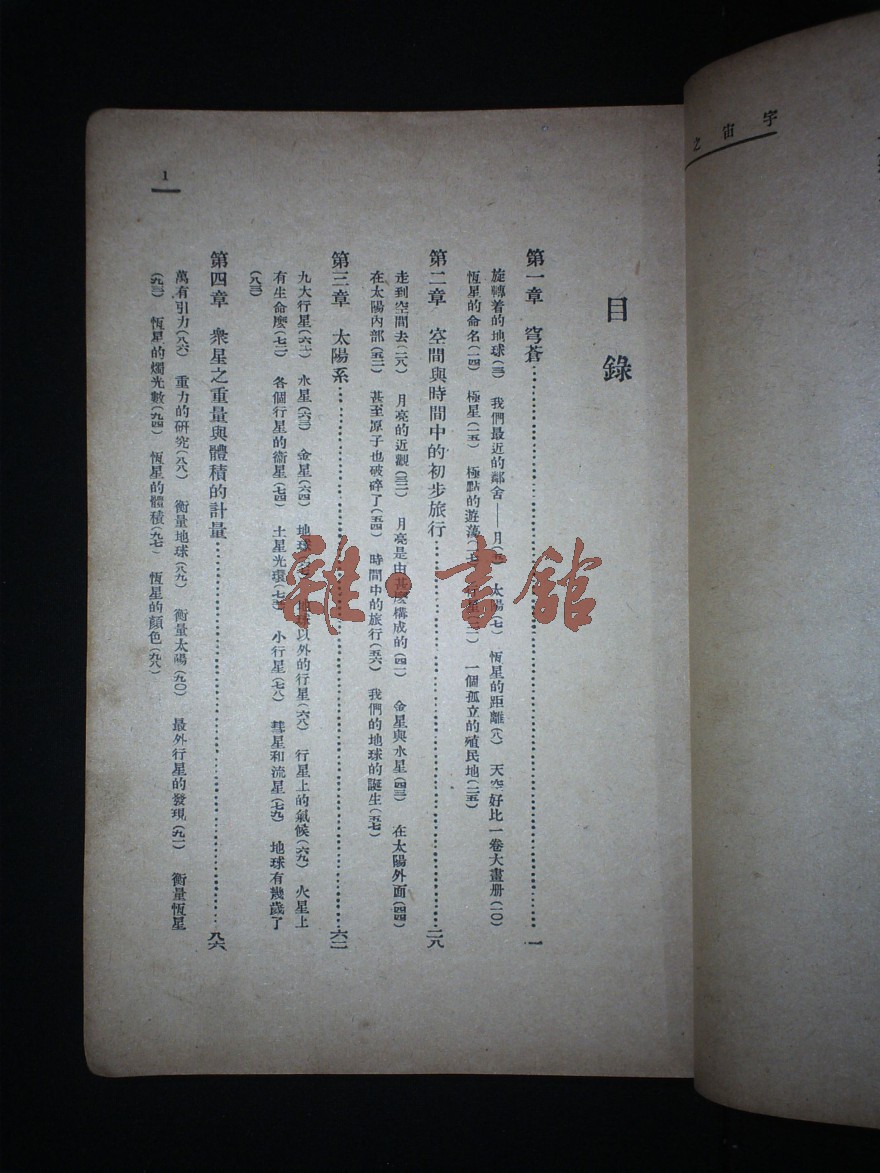 宇宙之
目錄
第一章 穹蒼……一
旋轉着的地球(三) 我們最近的鄰舍——月(五) 太陽(七) 恆星的距離(八) 天空好比一卷大畫册(一〇)
恆星的命名(一四) 極星(一五) 極點的遊蕩 行星 一個孤立的殖民地(二五)
第二章 空間與時間中的初步旅行……二八
走到空間去(二八) 月亮的近觀(三二) 月亮是由甚麼構成的(四一) 金星與水星(四三) 在太陽外面(四四)
在太陽內部(五二) 甚至原子也破碎了(五四) 時間中的旅行(五六) 我們的地球的誕生(五七)
第三章 太陽系……六二
九大行星(六二) 水星(六三) 金星(六四) 地球 地球以外的行星(六八) 行星上的氣候(六九) 火星上
有生命麼(七二) 各個行星的衞星(七四) 土星光環 小行星(七八) 彗星和流星(七九) 地球有幾歲了
(八三)
第四章 衆星之重量與體積的計量……八六
萬有引力(八六) 重力的研究(八八) 衡量地球(八九) 衡量太陽(九〇) 最外行星的發現(九一) 衡量恆星
(九三) 恆星的燭光數(九四) 恆星的體積(九七) 恆星的顏色(九八)
1
雜·書館